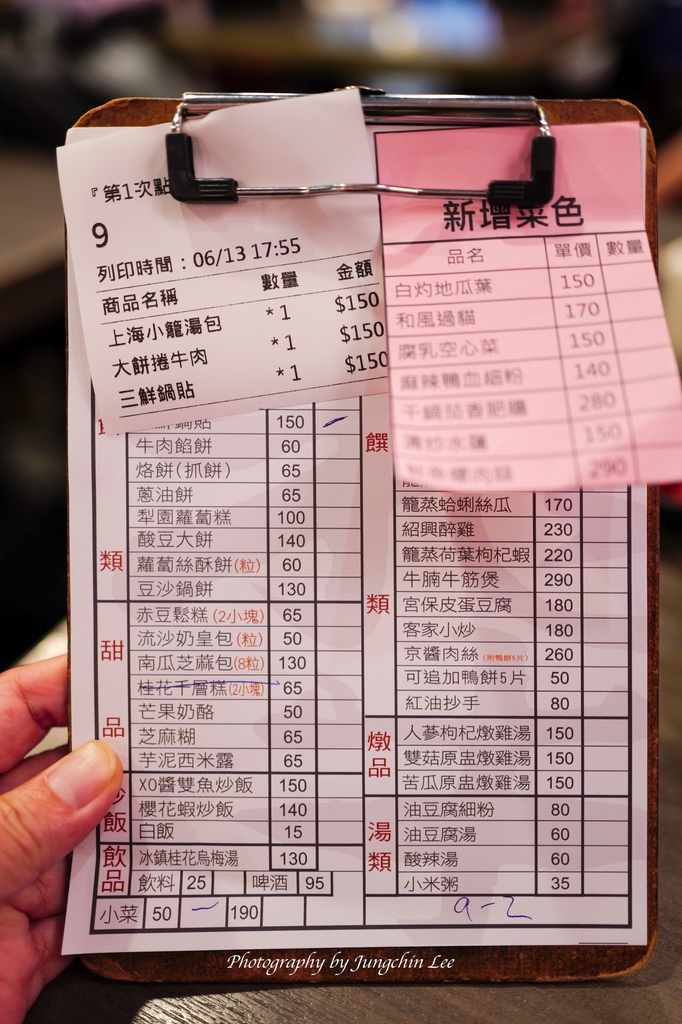 『第1次點
9
列印時間：06/13 17:55
商品名稱 數量 金額
上海小籠湯包 *1 $150
大餅捲牛肉 *1 $150
三鮮鍋貼 *1 $150
新增菜色
品名 單價 數量
白灼地瓜葉 150
和風過貓 170
腐乳空心菜 150
麻辣鴨血細粉 140
干鍋茄香肥腸 280
清炒水蓮 150
290
鍋貼 150
牛肉餡餅 60
烙餅(抓餅) 65
蔥油餅 65
犁園蘿蔔糕 100
酸豆大餅 140
類
蘿蔔絲酥餅(粒) 60
豆沙鍋餅 130
甜品
赤豆鬆糕(2小塊) 65
流沙奶皇包(粒) 50
南瓜芝麻包(8粒) 130
桂花千層糕(2小塊) 65
芒果奶酪 50
芝麻糊 65
芋泥西米露 65
炒飯
XO醬雙魚炒飯 150
櫻花蝦炒飯 140
白飯 15
飲品
冰鎮桂花烏梅湯 130
飲料 25 啤酒 95
小菜 50 190
饌類
籠蒸蛤蜊絲瓜 170
紹興醉雞 230
籠蒸荷葉枸杞蝦 220
牛腩牛筋煲 290
宮保皮蛋豆腐 180
客家小炒 180
京醬肉絲(附鴨餅5片) 260
可追加鴨餅5片 50
紅油抄手 80
燉品
人蔘枸杞燉雞湯 150
雙菇原盅燉雞湯 150
苦瓜原盅燉雞湯 150
湯類
油豆腐細粉 80
油豆腐湯 60
酸辣湯 60
小米粥 35
9-2
Photography by Jungchin Lee